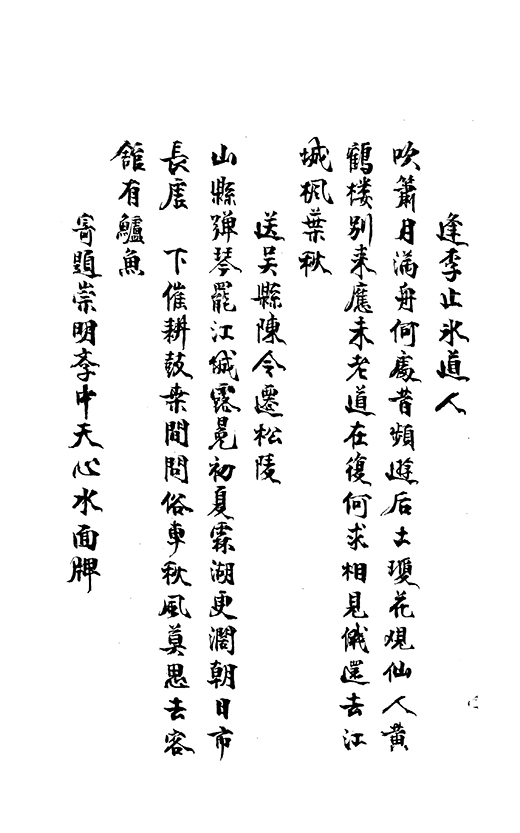 逢李止氷道人
吹簫月滿舟何處昔頻遊后土瓊花觀仙人黄
鶴楼別来應未老道在復何求相見俄還去江
城枫葉秋
送吴縣陳令遷松陵
山縣弾琴罷江城露冕初夏霖湖更濶朝日市
長唐 下催耕鼓桒間問俗車秋風莫思去客
舘有鱸魚
寄題崇明李中天心水面牌